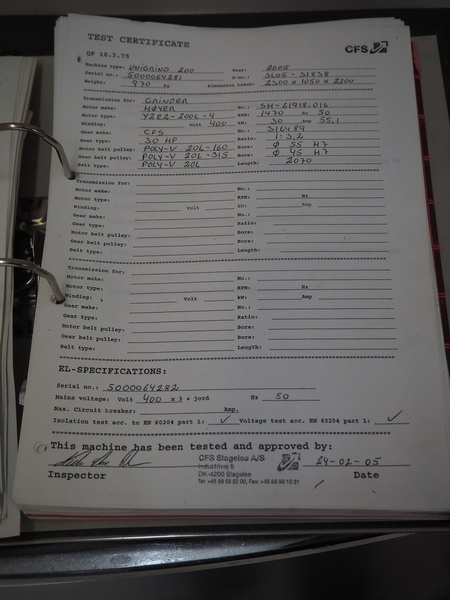 TEST CERTIFICATE
CFS
QF 16.3.75
Machine type: UNIGRIND 200 Year: 2005
Serial no.: 5000064281 O-no.: 3L05-31838
Weight: 970 kg Dimension LxWxH: 2300 x 1050 x 2200
Transmission for: GRINDER
Motor make: HØYER No.: SH-61918.016
Motor type: Y2E2-200L-4 RPM: 1470 Hz 50
Winding: Volt 400 kW: 30 Amp 55,1
Gear make: CFS No.: 316489
Gear type: 30 HP Ratio: 1:3,2
Motor belt pulley: POLY-V 20L-160 Bore: Ø 55 H7
Gear belt pulley: POLY-V 20L-315 Bore: Ø 45 H7
Belt type: POLY-V 20L Length: 2070
Transmission for:
Motor make: No.:
Motor type: RPM: Hz
Winding: Volt kW: Amp
Gear make: No.:
Gear type: Ratio:
Motor belt pulley: Bore:
Gear belt pulley: Bore:
Belt type: Length:
Transmission for:
Motor make: No.:
Motor type: RPM: Hz
Winding: Volt kW: Amp
Gear make: No.:
Gear type: Ratio:
Motor belt pulley: Bore:
Gear belt pulley: Bore:
Belt type: Length:
EL-SPECIFICATIONS:
Serial no.: 5000064282
Mains voltage: Volt 400 x 3 + jord Hz 50
Max. Circuit breaker Amp.
Isolation test acc. to EN 60204 part 1: ✓ Voltage test acc. EN 60204 part 1: ✓
This machine has been tested and approved by:
CFS Slagelse A/S
Industrivej 6
DK-4200 Slagelse
24-02-05
Inspector Date